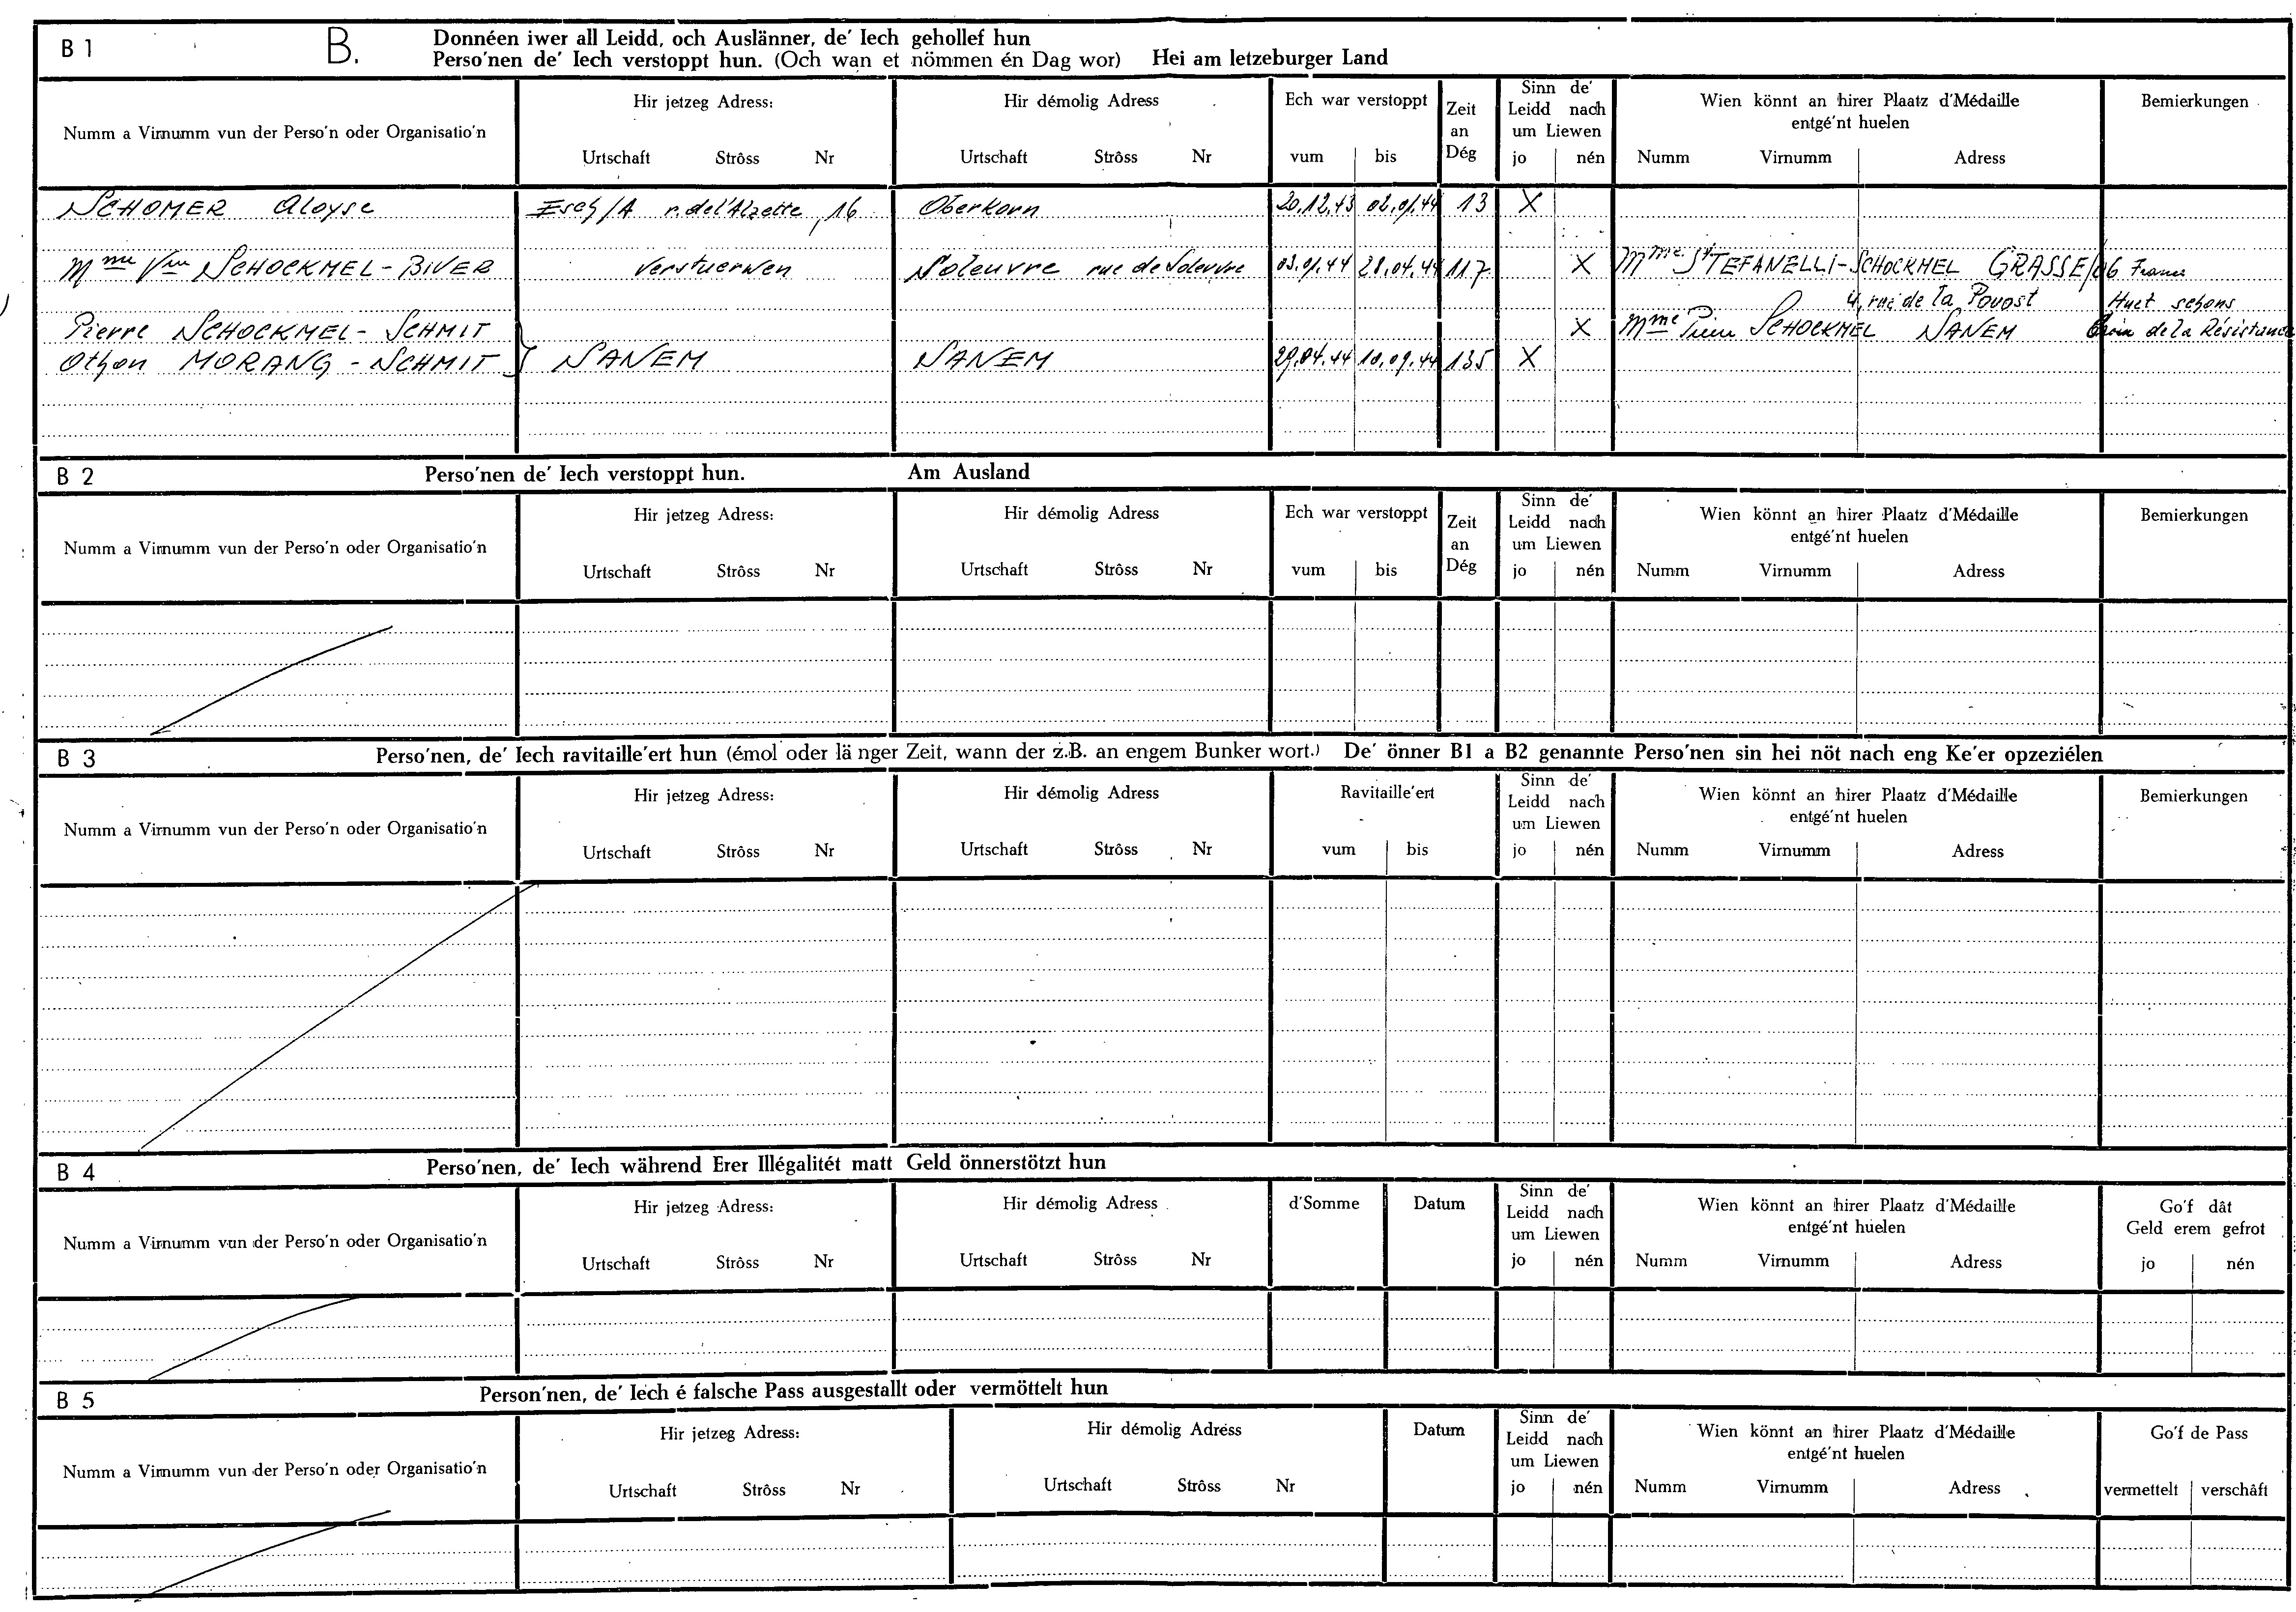 B 1 B. Donnéen iwer all Leidd, och Auslänner, de' Iech gehollef hun
Perso'nen de' Iech verstoppt hun. (Och wan et nömmen én Dag wor) Hei am letzeburger Land
Numm a Virnumm vun der Perso'n oder Organisatio'n
Hir jetzeg Adress:
Urtschaft Strôss Nr
Hir démolig Adress
Urtschaft Strôss Nr
Ech war verstoppt
vum bis
Zeit
an
Dég
Sinn de'
Leidd nach
um Liewen
jo nén
Wien könnt an hirer Plaatz d'Médaille
entgé'nt huelen
Numm Virnumm Adress
Bemierkungen
SCHOMER Aloyse Esch/A r. de l'Alzette, 16 Oberkorn 20.12.43 02.01.44 13 X
Mme Vve SCHOCKMEL-BIVER verstuerwen Soleuvre rue de Soleuvre 03.01.44 28.04.44 117 X Mme STEFANELLI-SCHOCKMEL GRASSE/06 France
4, rue de la Huet schons
Pierre SCHOCKMEL-SCHMIT X Mme Pierre SCHOCKMEL SANEM Croix de la Résistance
Othon MORANG-SCHMIT SANEM SANEM 29.04.44 10.09.44 135 X
B 2 Perso'nen de' Iech verstoppt hun. Am Ausland
Numm a Virnumm vun der Perso'n oder Organisatio'n
Hir jetzeg Adress:
Urtschaft Strôss Nr
Hir démolig Adress
Urtschaft Strôss Nr
Ech war verstoppt
vum bis
Zeit
an
Dég
Sinn de'
Leidd nach
um Liewen
jo nén
Wien könnt an hirer Plaatz d'Médaille
entgé'nt huelen
Numm Virnumm Adress
Bemierkungen
B 3 Perso'nen, de' Iech ravitaille'ert hun (émol oder länger Zeit, wann der z.B. an engem Bunker wort.) De' önner B1 a B2 genannte Perso'nen sin hei nöt nach eng Ke'er opzeziélen
Numm a Virnumm vun der Perso'n oder Organisatio'n
Hir jetzeg Adress:
Urtschaft Strôss Nr
Hir démolig Adress
Urtschaft Strôss Nr
Ravitaille'ert
vum bis
Sinn de'
Leidd nach
um Liewen
jo nén
Wien könnt an hirer Plaatz d'Médaille
entgé'nt huelen
Numm Virnumm Adress
Bemierkungen
B 4 Perso'nen, de' Iech während Erer Illégalitét matt Geld önnerstötzt hun
Numm a Virnumm vun der Perso'n oder Organisatio'n
Hir jetzeg Adress:
Urtschaft Strôss Nr
Hir démolig Adress
Urtschaft Strôss Nr
d'Somme
Datum
Sinn de'
Leidd nach
um Liewen
jo nén
Wien könnt an hirer Plaatz d'Médaille
entgé'nt huelen
Numm Virnumm Adress
Go'f dât
Geld erem gefrot
jo nén
B 5 Person'nen, de' Iech é falsche Pass ausgestallt oder vermöttelt hun
Numm a Virnumm vun der Perso'n oder Organisatio'n
Hir jetzeg Adress:
Urtschaft Strôss Nr
Hir démolig Adress
Urtschaft Strôss Nr
Datum
Sinn de'
Leidd nach
um Liewen
jo nén
Wien könnt an hirer Plaatz d'Médaille
entgé'nt huelen
Numm Virnumm Adress
Go'f de Pass
vermettelt verschâft